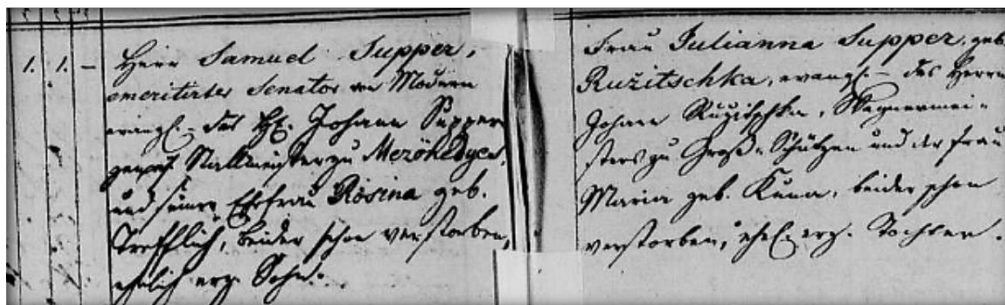 1. 1. –
Herr Samuel Supper,
emeritirter Senator von Modern
evangl. – des H. Johann Supper
gewes. Stallmeister zu Mezöhedyes,
und seiner Ehefrau Rosina geb.
Trefflich, beider schon verstorben,
ehelich erz. Sohn.
Frau Julianna Supper, geb.
Ružitschka, evangl. – des Herrn
Johann Ružitschka, Wagnermei-
sters zu Groß-Schützen und der Frau
Maria geb. Kuna, beider schon
verstorben, ehel. erz. Tochter.